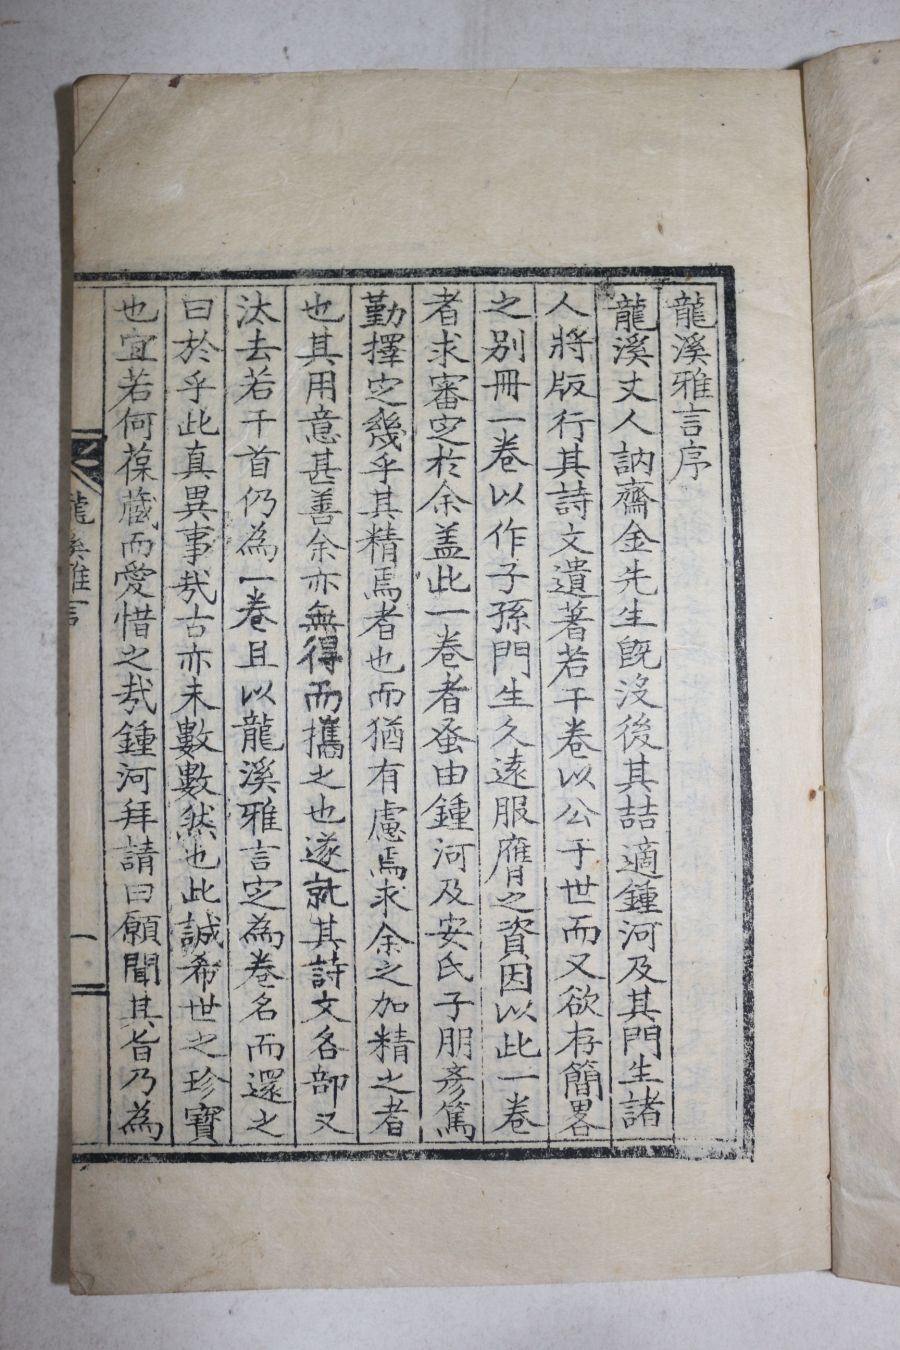 龍溪雅言序
龍溪丈人訥齋金先生旣沒後其喆適鍾河及其門生諸
人將版行其詩文遺著若干卷以公于世而又欲存簡畧
之別冊一卷以作子孫門生久遠服膺之資因以此一卷
者求審定於余盖此一卷者蚤由鍾河及安氏子朋彥篤
勤擇定幾乎其精焉者也而猶有慮焉求余之加精之者
也其用意甚善余亦無得而攜之也遂就其詩文各部又
汰去若干首仍為一卷且以龍溪雅言定為卷名而還之
曰於乎此真異事㢤古亦未數數然也此誠希世之珍寳
也宜若何葆藏而愛惜之㢤鍾河拜請曰願聞其旨乃為
龍溪雅言
一